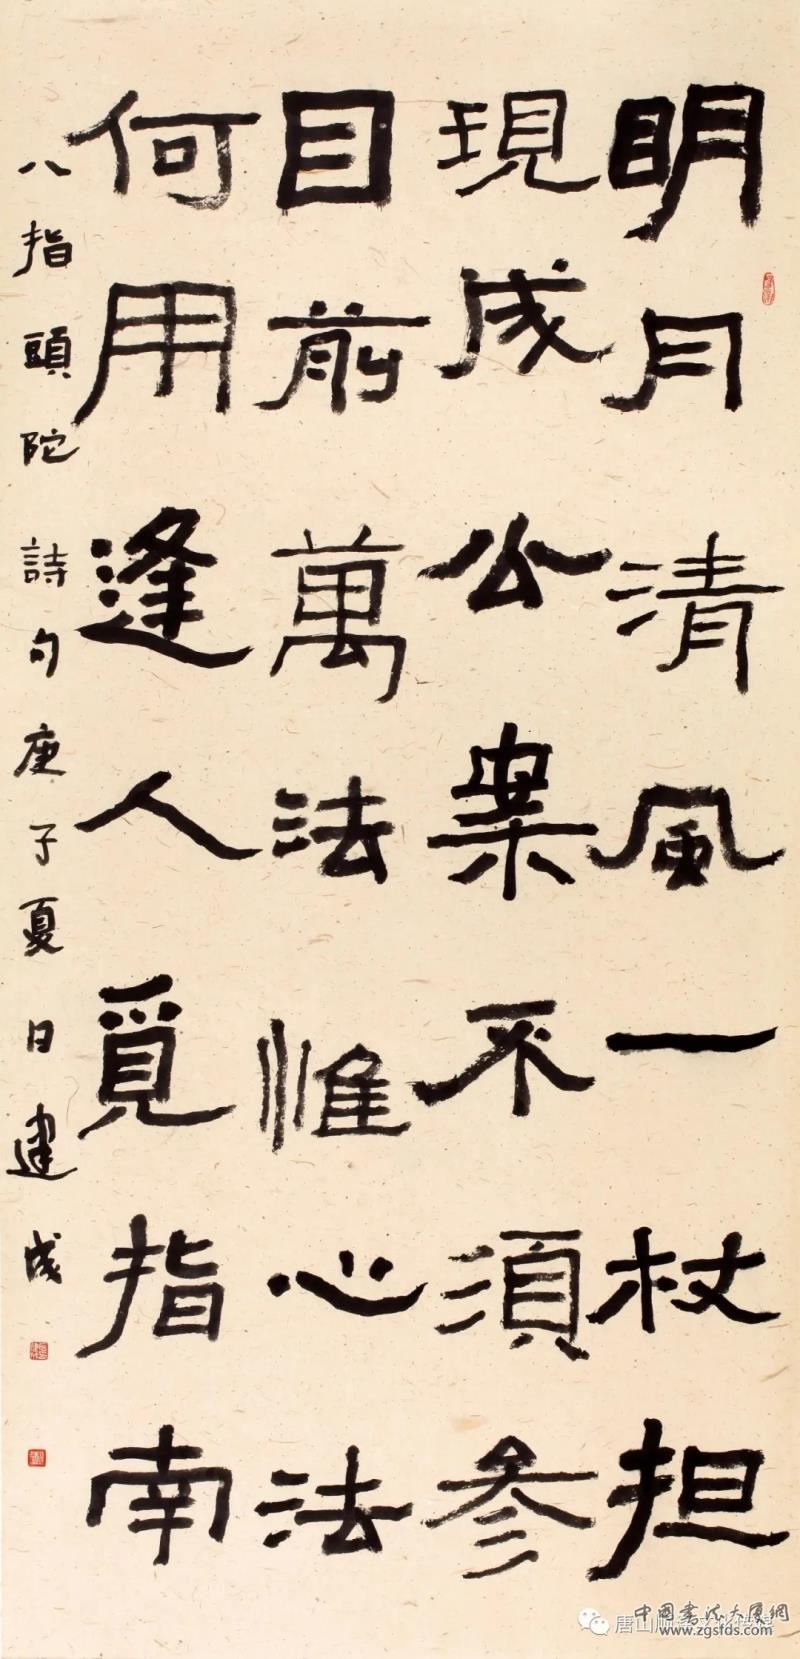 明月清風一杖担
現成公案不須参
目前萬法惟心法
何用逢人覓指南
八指頭陀詩句庚子夏日建成
中國書法大廈網
www.zgsfds.com